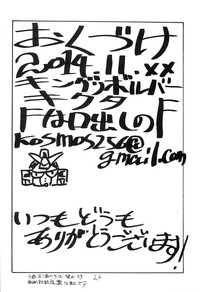 おくづけ
2014.11.xx
キングリボルバー
キクタ
Fは口出しのF
kosmos256@
gmail.com
いつもどうも
ありがとうございます!